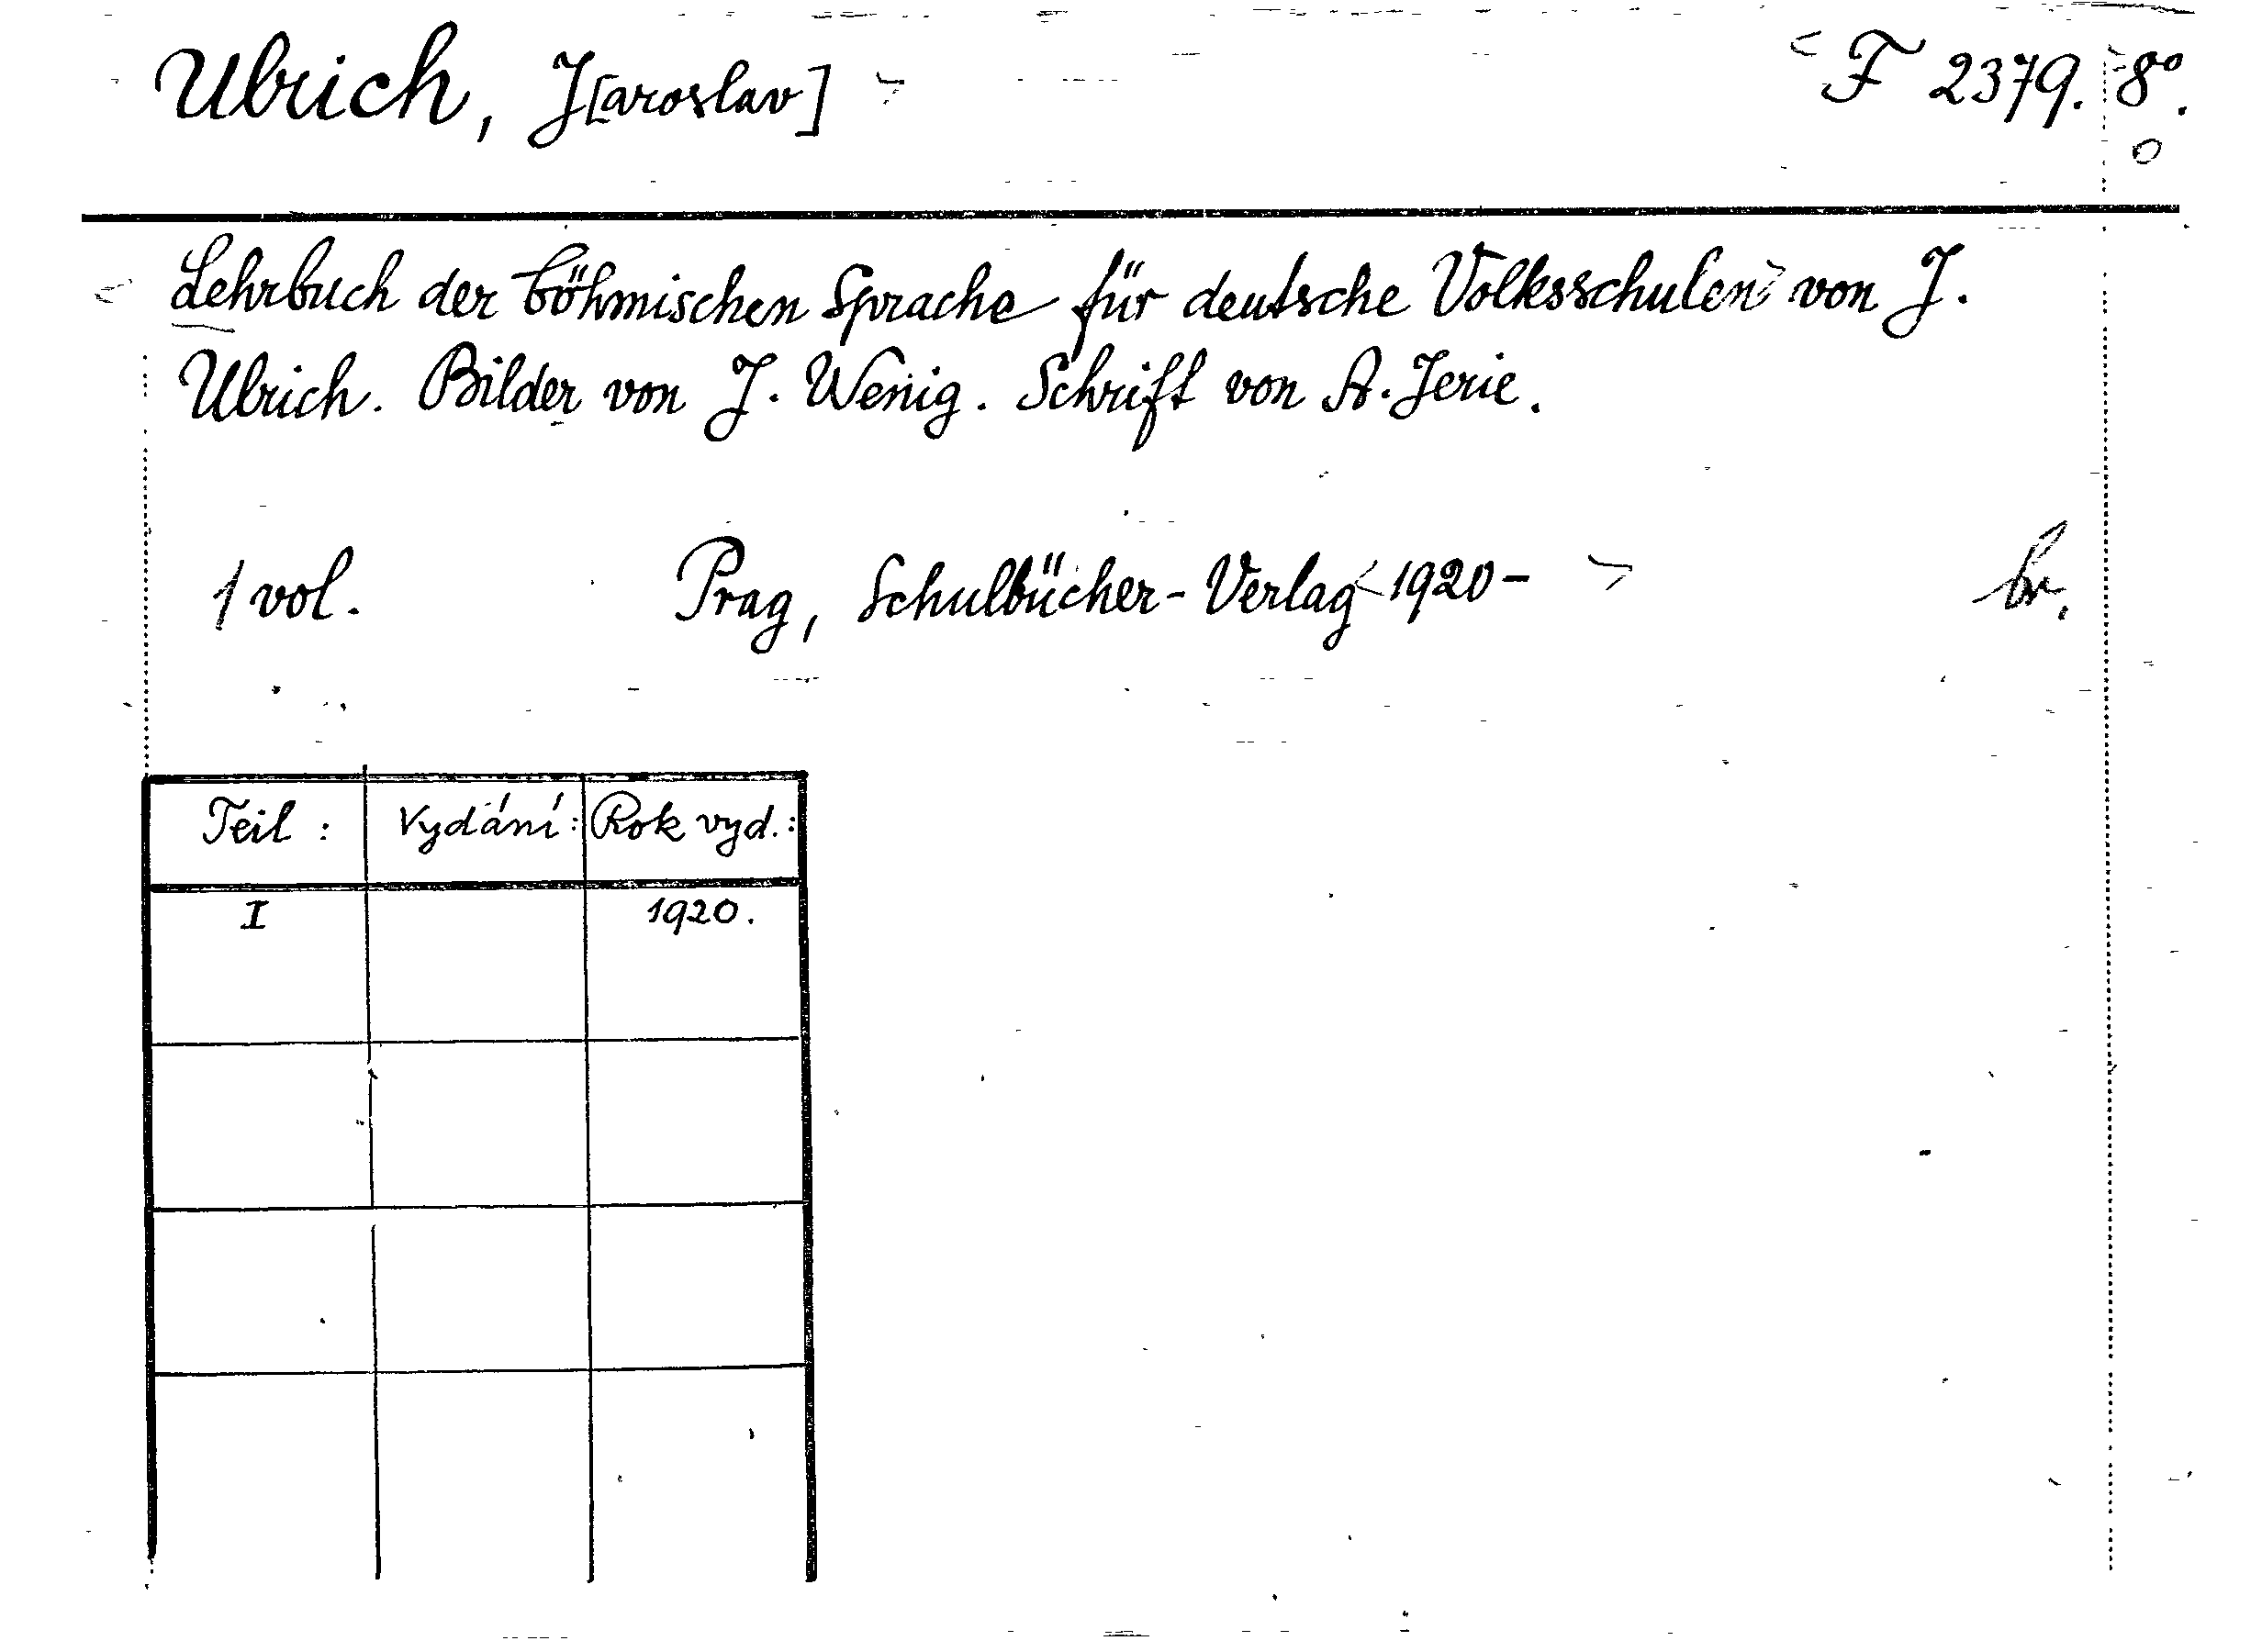 Ulrich, J[aroslav] F 2379. 8°.
Lehrbuch der böhmischen Sprache für deutsche Volksschulen von J.
Ulrich. Bilder von J. Wenig. Schrift von A. Jerie.
1 vol. Prag, Schulbücher-Verlag 1920- br.
Teil: Vydání: Rok vyd.:
I 1920.